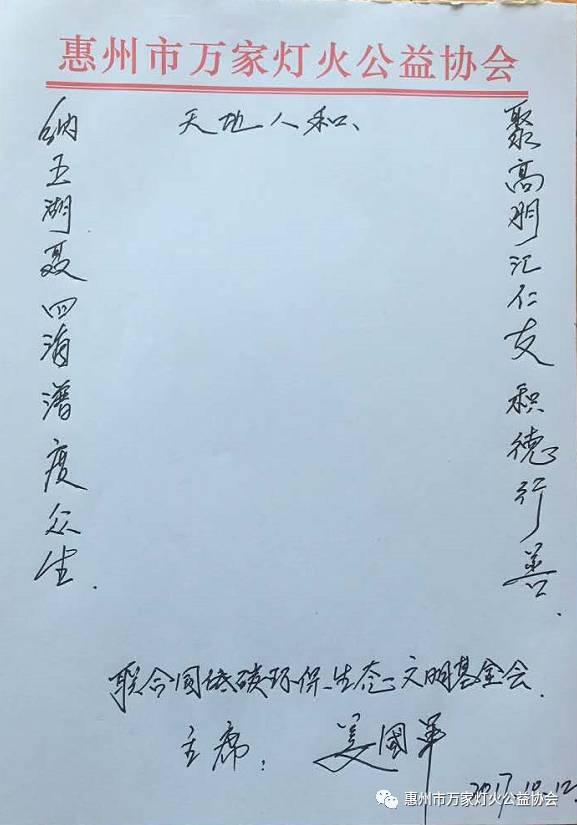 惠州市万家灯火公益协会
天地人和、
聚高朋汇仁友积德行善.
纳五湖聂四海潽度众生.
联合国低碳环保、生态文明基金会.
主席: 姜國军
2017.10.12.
惠州市万家灯火公益协会